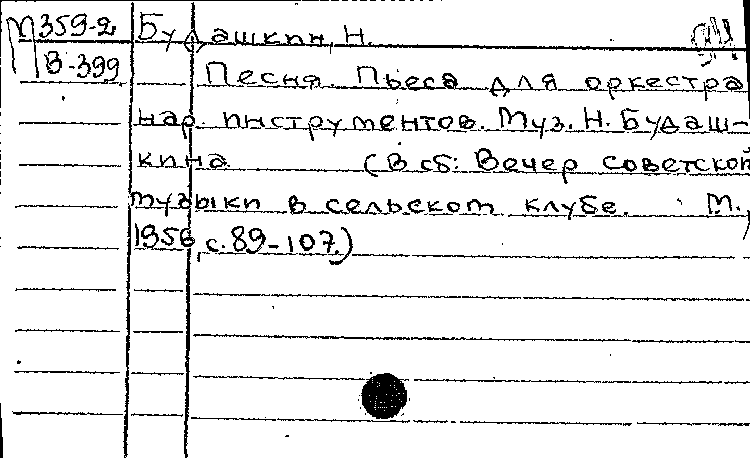 М359-2 Будашкин, Н.
В-399 Песня. Пьеса для оркестра
нар. инструментов. Муз. Н. Будаш-
кина (В сб: Вечер советской
музыки в сельском клубе. М.,
1956, с. 89-107.)